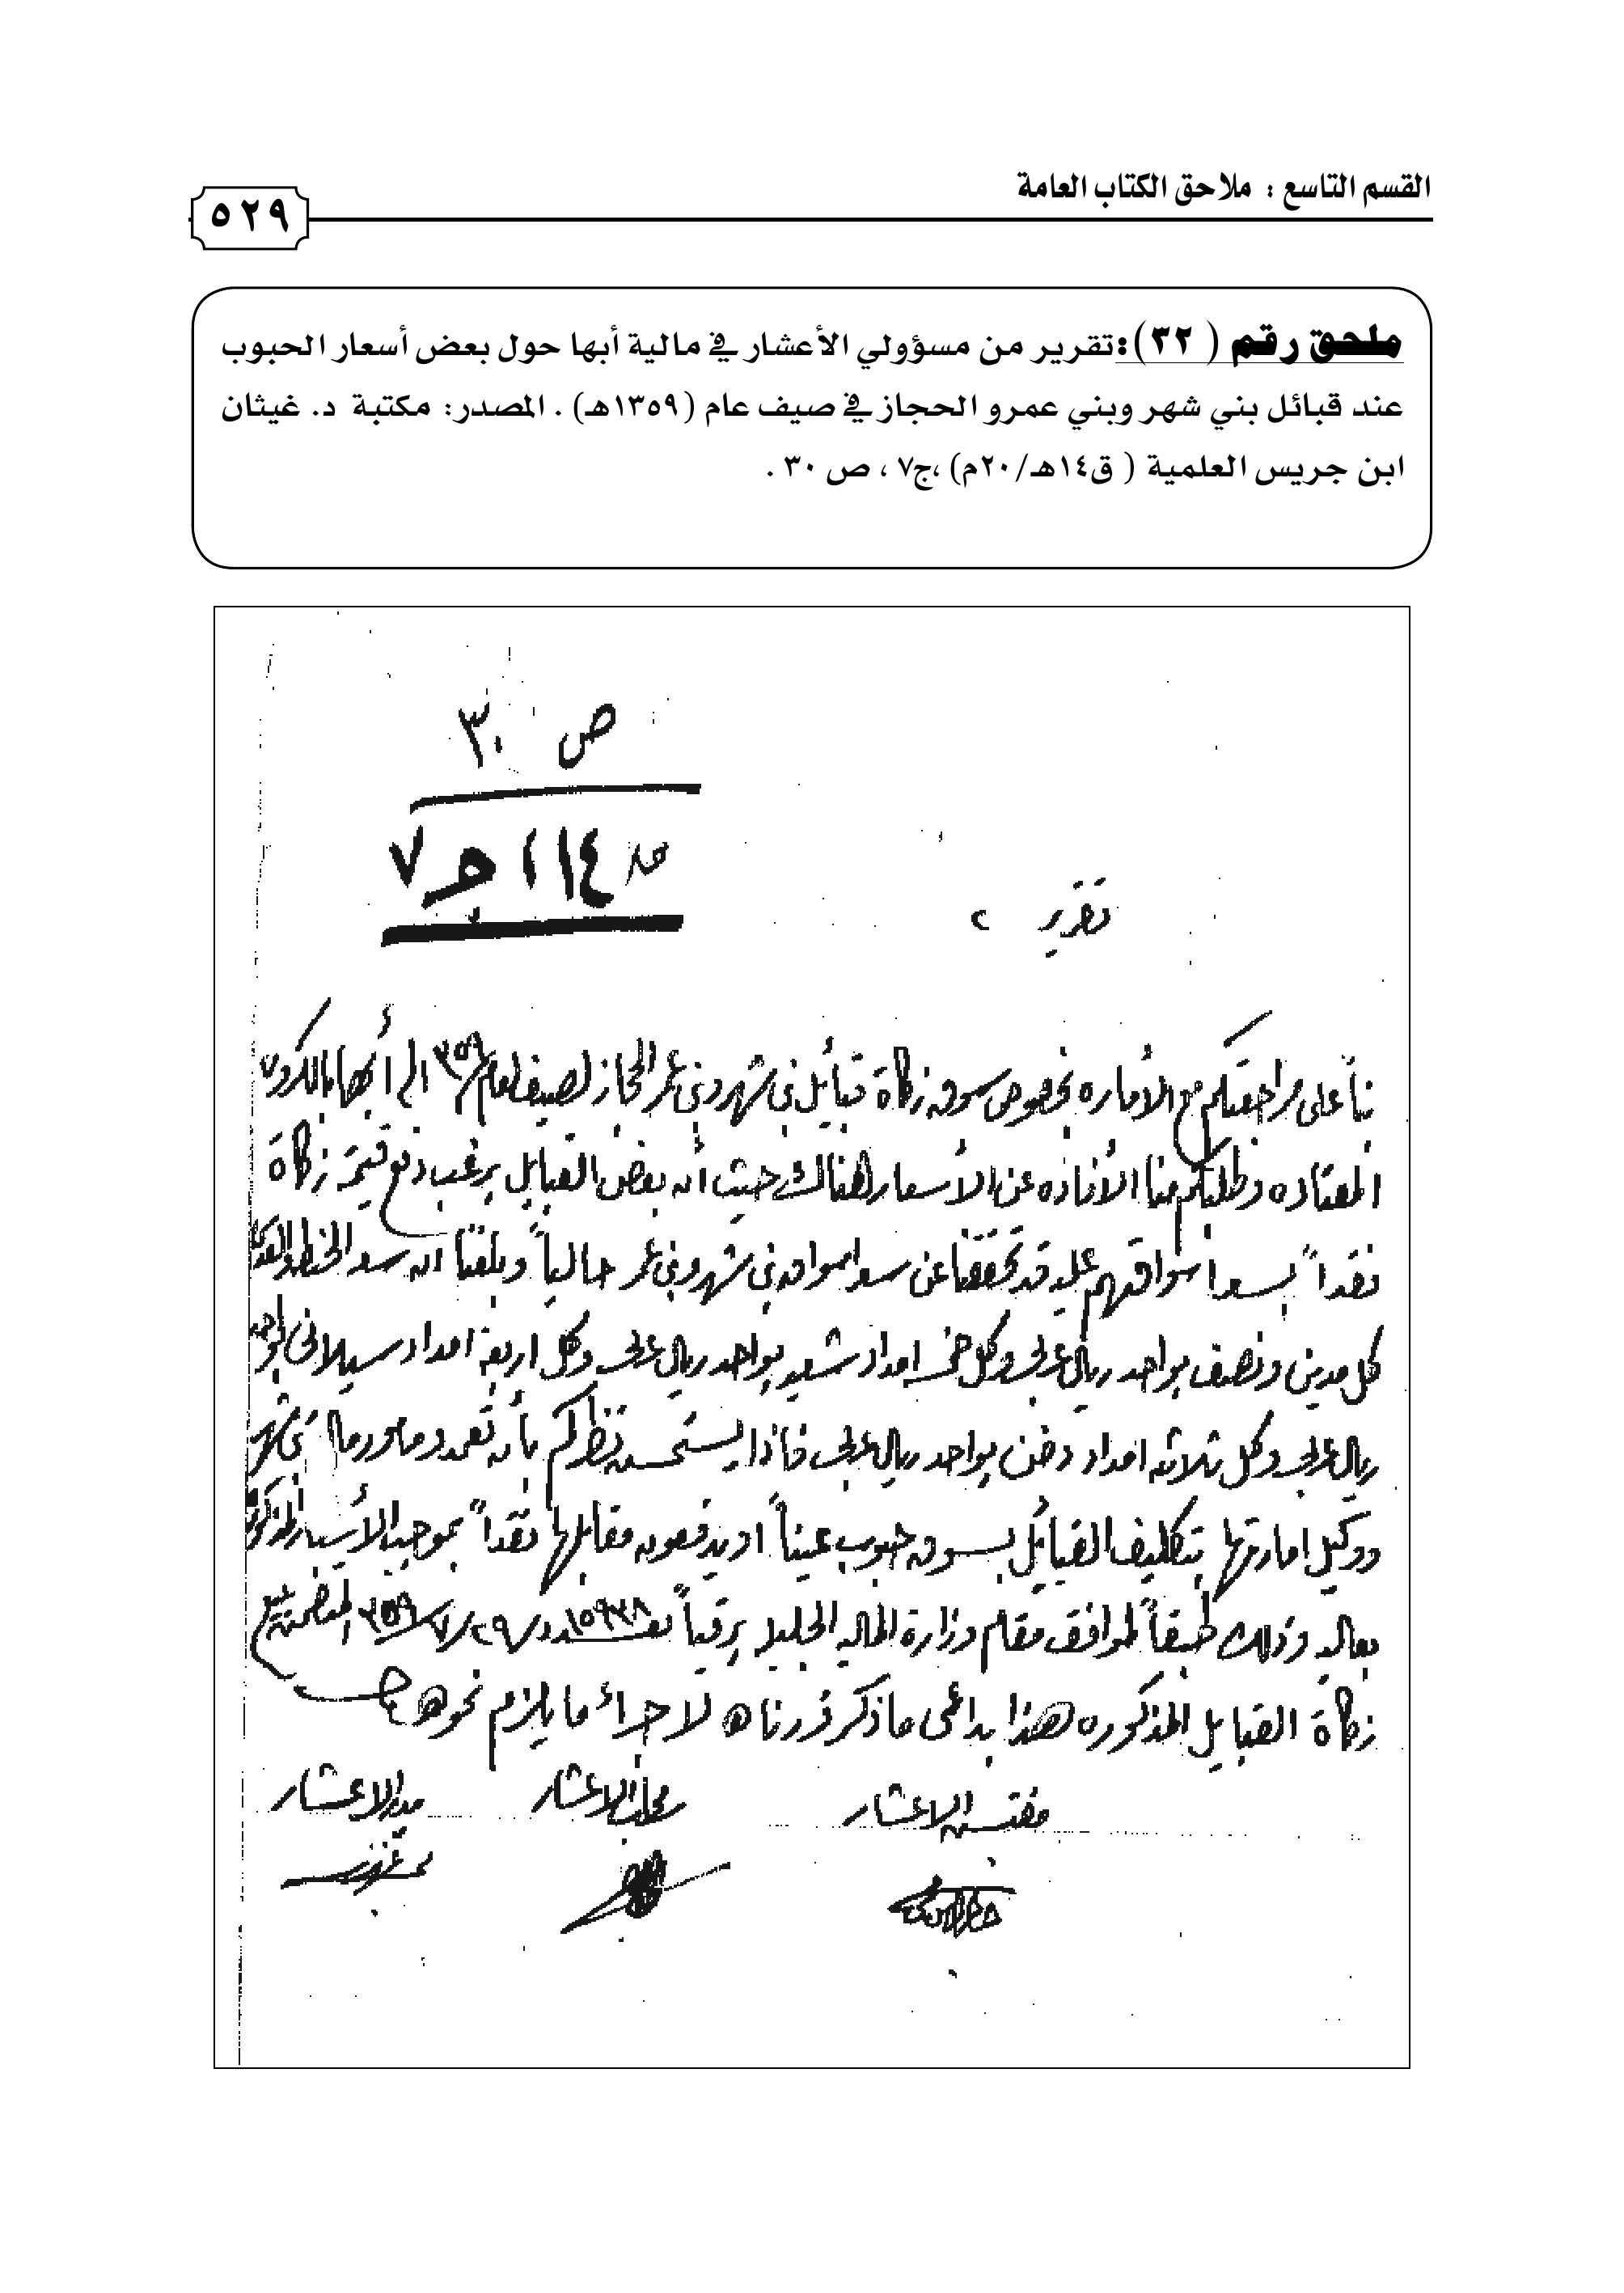 القسم التاسع : ملاحق الكتاب العامة
٥٢٩
ملحق رقم ( ٣٢): تقرير من مسؤولي الأعشار في مالية أبها حول بعض أسعار الحبوب
عند قبائل بني شهر وبني عمرو الحجاز في صيف عام (١٣٥٩هـ) . المصدر: مكتبة د. غيثان
ابن جريس العلمية ( ق١٤هـ/٢٠م) ،ج٧ ، ص ٣٠ .
ص ٣٠
١١٤ ج٧
تقرير
بناً على مراجعتكم مع الأماره بخصوص سوق زكاة قبأيل بني شهر وبني عمر الحجاز لصيف لعام ٣٥٩ الى أبها
المعتاده وطلبكم منا الأفاده عن الأسعار هناك حيث أن بعض القبايل يرغب دفع قيمة زكاة
نقداً بسعر اسواقهم عليه قد تحققنا عن سعر اسواق بني شهر وبني عمر حالياً وبلغنا ان سعر الحنطه
كل مدين ونصف بواحد ريال عربي وكل خمسه امداد شعير بواحد ريال عربي وكل اربعة امداد
ريال عربي وكل ثلاثه امداد دخن بواحد ريال عربي فاذا يستحسن نظركم بأن تعمدو مامور مال بني شهر
ووكيل امارتها بتكليف القبائل بسوق حبوب عيناً او يدفعون مقابلها نقداً بموجب الأسعار المذكوره
بعاليه وذلك طبقاً لموافقة مقام وزارة الماليه الجليله برقياً بعدد ١٥٩٣٨ في ٢٩/٧/٣٥٩ المتضمن بيع
زكاة القبايل المذكوره هذا بداعي ما ذكر قررناه لاجراء ما يلزم نحوه
مفتش الاعشار
كاتب الاعشار
مدير الاعشار